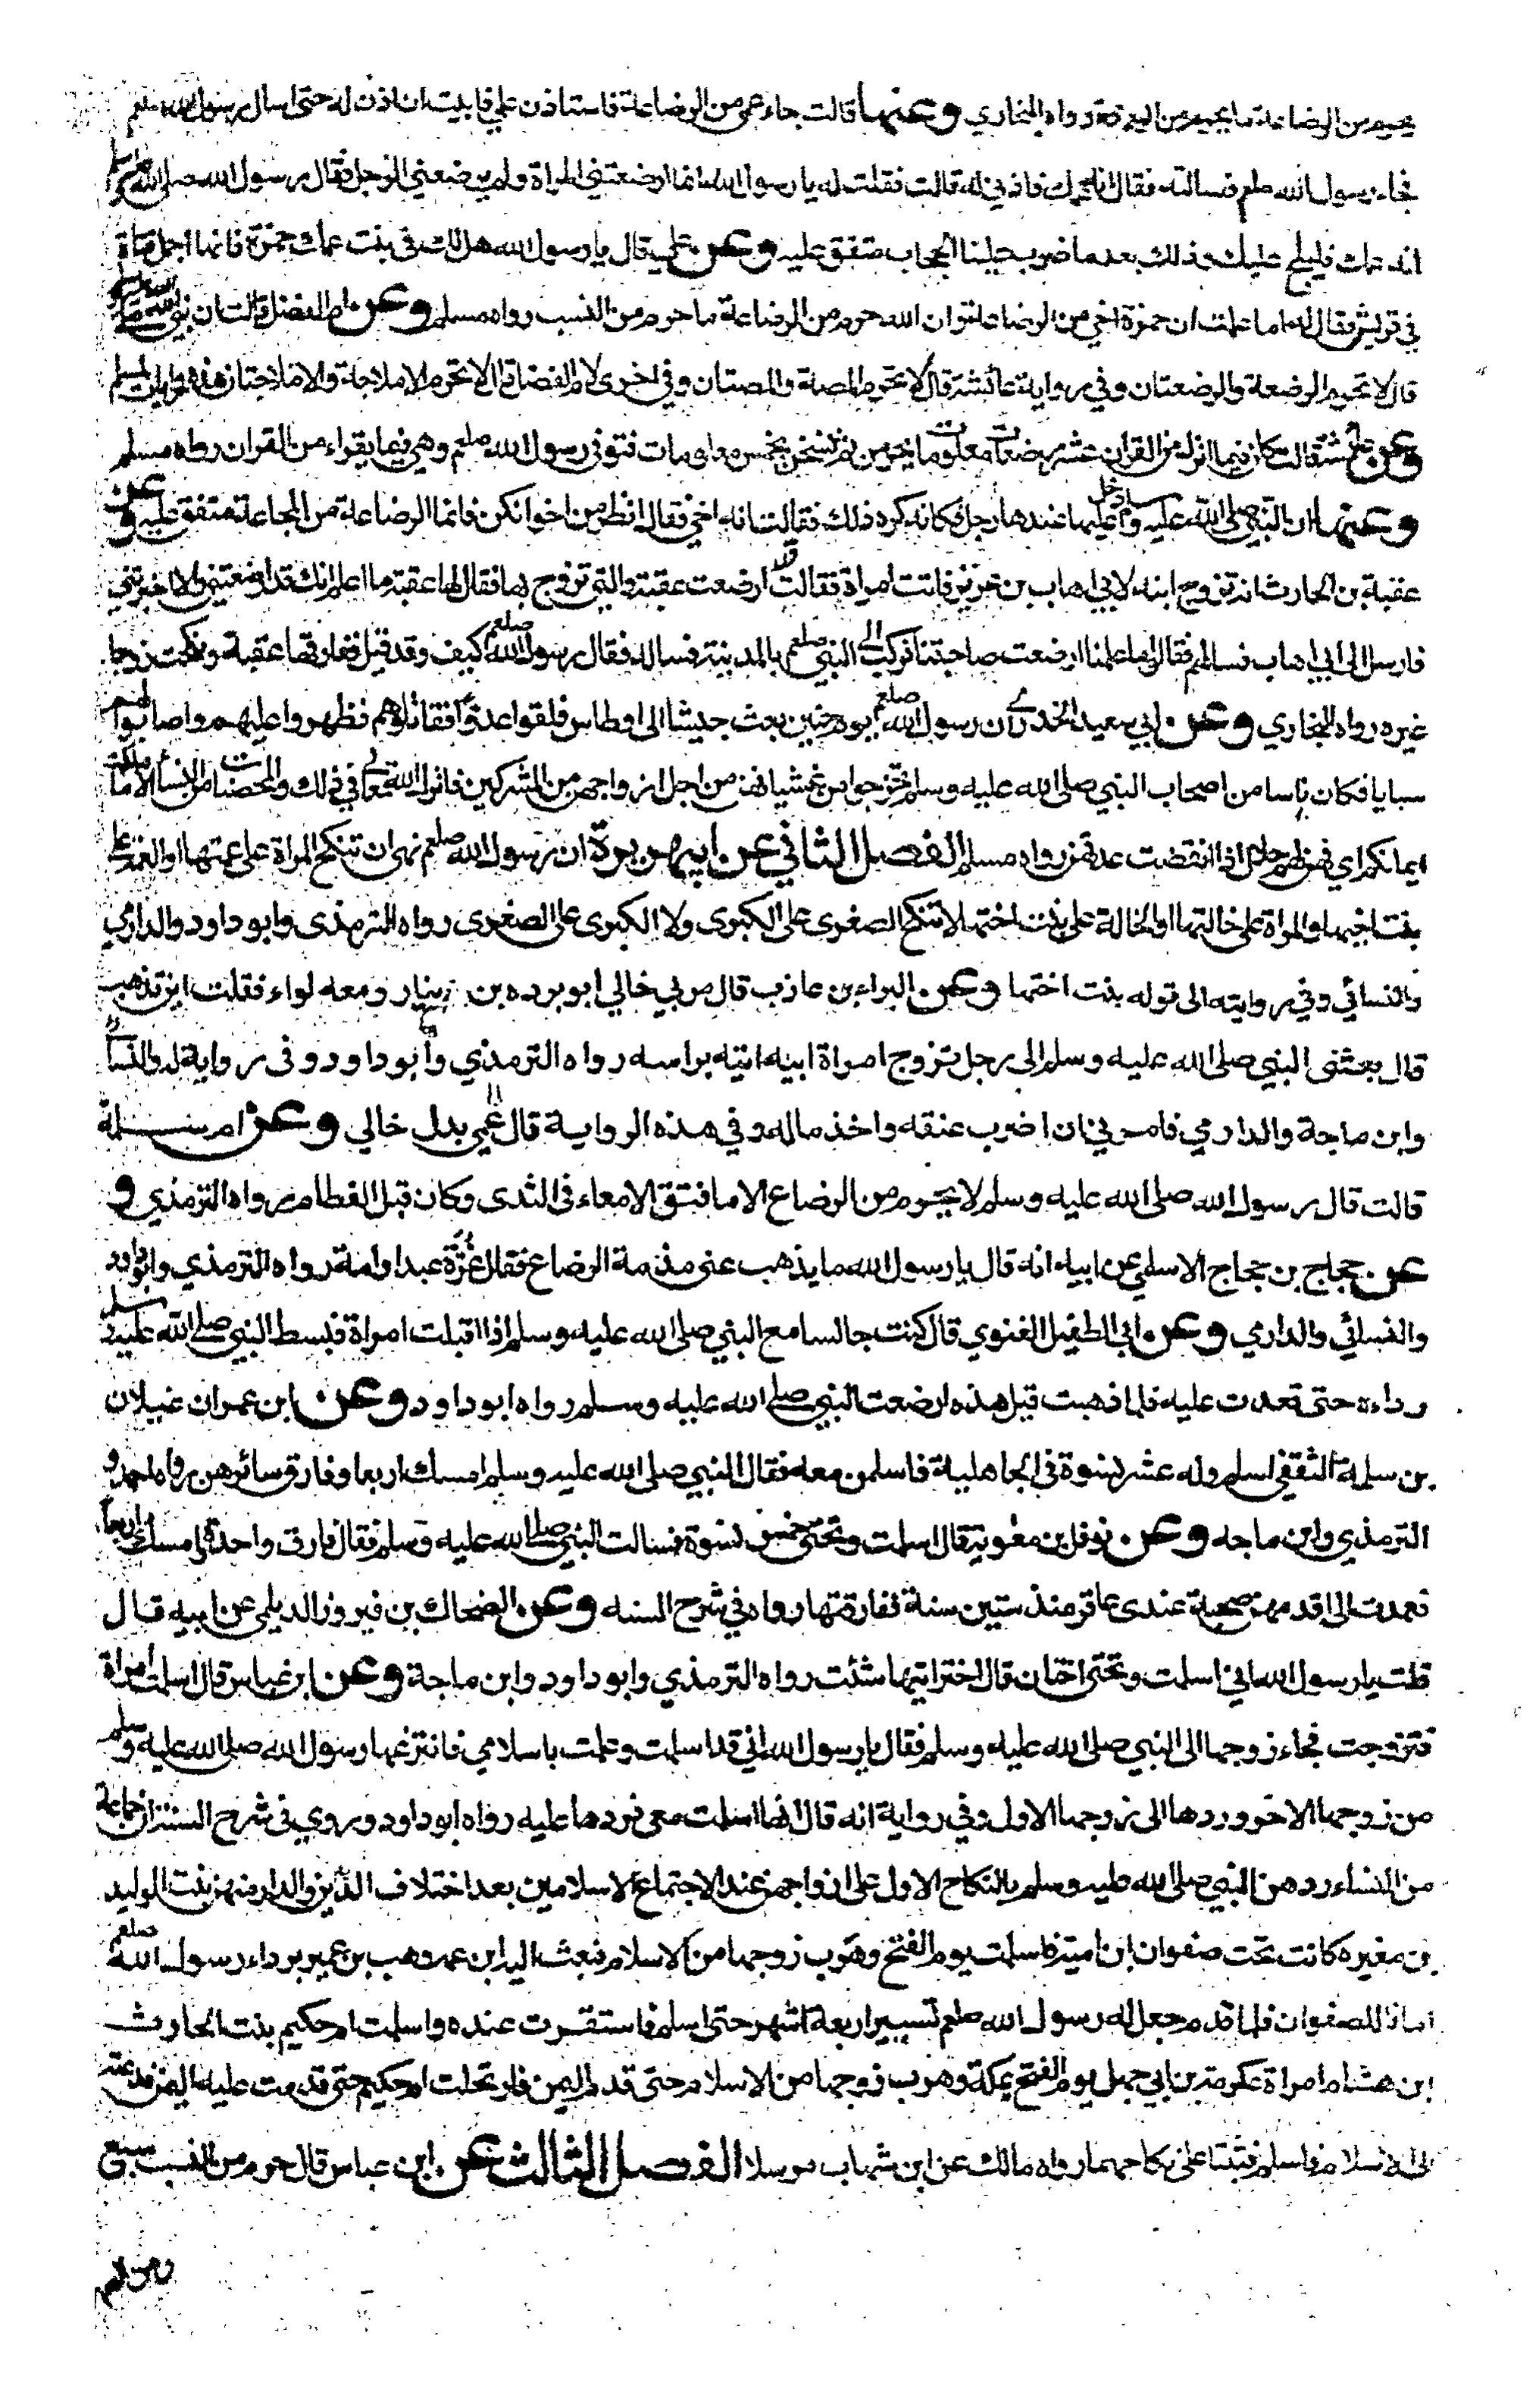 يحرم من الرضاعة ما يحرم من الولادة رواه البخاري وعنها قالت جاء عمي من الرضاعة فاستاذن علي فابيت ان اذن له حتى اسال رسول الله صلعم
فجاء رسول الله صلعم فسالته فقال انه عمك فاذني له قالت فقلت له يا رسول الله انما ارضعتني المراة ولم يرضعني الرجل فقال رسول الله صلى الله عليه وسلم
انه عمك فليلج عليك وذلك بعد ما ضرب علينا الحجاب متفق عليه وعن علي قال يا رسول الله هل لك في بنت عمك حمزة فانها اجمل فتاة
في قريش فقال له اما علمت ان حمزة اخي من الرضاعة وان الله حرم من الرضاعة ما حرم من النسب رواه مسلم وعن ام الفضل قالت ان نبي الله صلى الله عليه وسلم
قال لا تحرم الرضعة والرضعتان وفي رواية عائشة قال لا تحرم المصة والمصتان وفي اخرى لام الفضل قال لا تحرم الاملاجة والاملاجتان هذه روايات لمسلم
وعن عائشة قالت كان فيما انزل من القران عشر رضعات معلومات يحرمن ثم نسخن بخمس معلومات فتوفي رسول الله صلعم وهي فيما يقراء من القران رواه مسلم
وعنها ان النبي صلى الله عليه وسلم دخل عليها عندها رجل فكانه كره ذلك فقالت انه اخي فقال انظرن من اخوانكن فانما الرضاعة من المجاعة متفق عليه وعن
عقبة بن الحارث انه تزوج ابنة لابي اهاب بن عزيز فاتت امراة فقالت قد ارضعت عقبة والتي تزوج بها فقال لها عقبة ما اعلم انك قد ارضعتيني ولا اخبرتني
فارسل الى ابي اهاب فسالهم فقالوا ما علمنا ارضعت صاحبتنا فركب الى النبي صلعم بالمدينة فساله فقال رسول الله صلعم كيف وقد قيل ففارقها عقبة ونكحت زوجا
غيره رواه البخاري وعن ابي سعيد الخدري ان رسول الله صلعم يوم حنين بعث جيشا الى اوطاس فلقوا عدوا فقاتلوهم فظهروا عليهم واصابوا لهم
سبايا فكان ناسا من اصحاب النبي صلى الله عليه وسلم تحرجوا من غشيانهن من اجل ازواجهن من المشركين فانزل الله تعالى في ذلك والمحصنات من النساء الا ما ملكت
ايمانكم اي فهن لهم حلال اذا انقضت عدتهن رواه مسلم الفصل الثاني عن ابي هريرة ان رسول الله صلعم نهى ان تنكح المراة على عمتها او العمة على
بنت اخيها والمراة على خالتها او الخالة على بنت اختها لا تنكح الصغرى على الكبرى ولا الكبرى على الصغرى رواه الترمذي وابو داود والدارمي
والنسائي وفي روايته الى قوله بنت اختها وعن البراء بن عازب قال مر بي خالي ابو برده بن نينار ومعه لواء فقلت اين تذهب
قال بعثني النبي صلى الله عليه وسلم الى رجل تزوج امراة ابيه اتيه براسه رواه الترمذي وابو داود وفي رواية له وللنسائي
وابن ماجة والدارمي فامرني ان اضرب عنقه واخذ ماله وفي هذه الرواية قال عمي بدل خالي وعن ام سلمة
قالت قال رسول الله صلى الله عليه وسلم لا يحرم من الرضاع الا ما فتق الامعاء في الثدي وكان قبل الفطام رواه الترمذي و
عن حجاج بن حجاج الاسلمي عن ابيه انه قال يا رسول الله ما يذهب عني مذمة الرضاع فقال غرة عبد او امة رواه الترمذي وابو داود
والنسائي والدارمي وعن ابي الطفيل الغنوي قال كنت جالسا مع النبي صلى الله عليه وسلم اذا اقبلت امراة فبسط النبي صلى الله عليه وسلم
رداءه حتى قعدت عليه فلما ذهبت قيل هذه ارضعت النبي صلى الله عليه وسلم رواه ابو داود وعن ابن عمر ان غيلان
بن سلمة الثقفي اسلم وله عشر نسوة في الجاهلية فاسلمن معه فقال النبي صلى الله عليه وسلم امسك اربعا وفارق سائرهن رواه احمد و
الترمذي وابن ماجه وعن نوفل بن معوية قال اسلمت وتحتي خمس نسوة فسالت النبي صلى الله عليه وسلم فقال فارق واحدة وامسك اربعا
فعمدت الى اقدمهن صحبة عندي عاقر منذ ستين سنة ففارقتها رواه في شرح السنه وعن الضحاك بن فيروز الديلمي عن ابيه قال
قلت يا رسول الله اني اسلمت وتحتي اختان قال اختر ايتهما شئت رواه الترمذي وابو داود وابن ماجة وعن ابن عباس قال اسلمت امراة
فتزوجت فجاء زوجها الى النبي صلى الله عليه وسلم فقال يا رسول الله اني قد اسلمت وعلمت باسلامي فانتزعها رسول الله صلى الله عليه وسلم
من زوجها الاخر وردها الى زوجها الاول وفي رواية انه قال انها اسلمت معي فردها عليه رواه ابو داود وروي في شرح السنة ان جماعة
من النساء ردهن النبي صلى الله عليه وسلم بالنكاح الاول على ازواجهن عند الاجتماع الاسلامين بعد اختلاف الدين والدار منهن بنت الوليد
بن مغيره كانت تحت صفوان ابن امية فاسلمت يوم الفتح وهرب زوجها من الاسلام فبعث اليه ابن عمه وهب بن عمير برداء رسول الله صلعم
امانا لصفوان فلما قدم جعل له رسول الله صلعم تسيير اربعة اشهر حتى اسلم فاستقرت عنده واسلمت ام حكيم بنت الحارث
ابن هشام امراة عكرمة بن ابي جهل يوم الفتح بمكة وهرب زوجها من الاسلام حتى قدم اليمن فارتحلت ام حكيم حتى قدمت عليه اليمن فدعته
الى الاسلام فاسلم فثبتا على نكاحهما رواه مالك عن ابن شهاب مرسلا الفصل الثالث عن ابن عباس قال حرم من النسب سبع
ومن